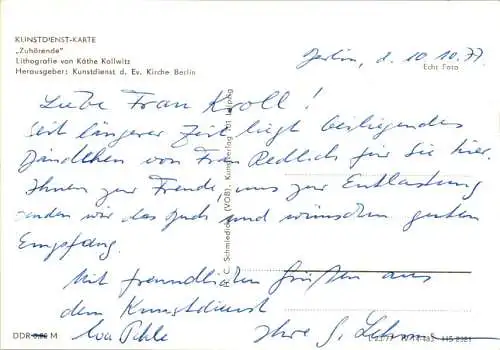 KUNSTDIENST-KARTE
„Zuhörende"
Lithografie von Käthe Kollwitz
Herausgeber: Kunstdienst d. Ev. Kirche Berlin
Berlin, d. 10.10.77
Echt Foto
Liebe Frau Kroll!
Seit längerer Zeit liegt beiliegendes
Bändchen von Frau Redlich für Sie hier.
Ihnen zur Freude, uns zur Entlastung
senden wir das Buch und wünschen guten
Empfang.
Mit freundlichen Grüßen aus
dem Kunstdienst
Ihre
C. Schmiedicke (VOB), Kunstverlag 701 Leipzig
DDR 0,25 M